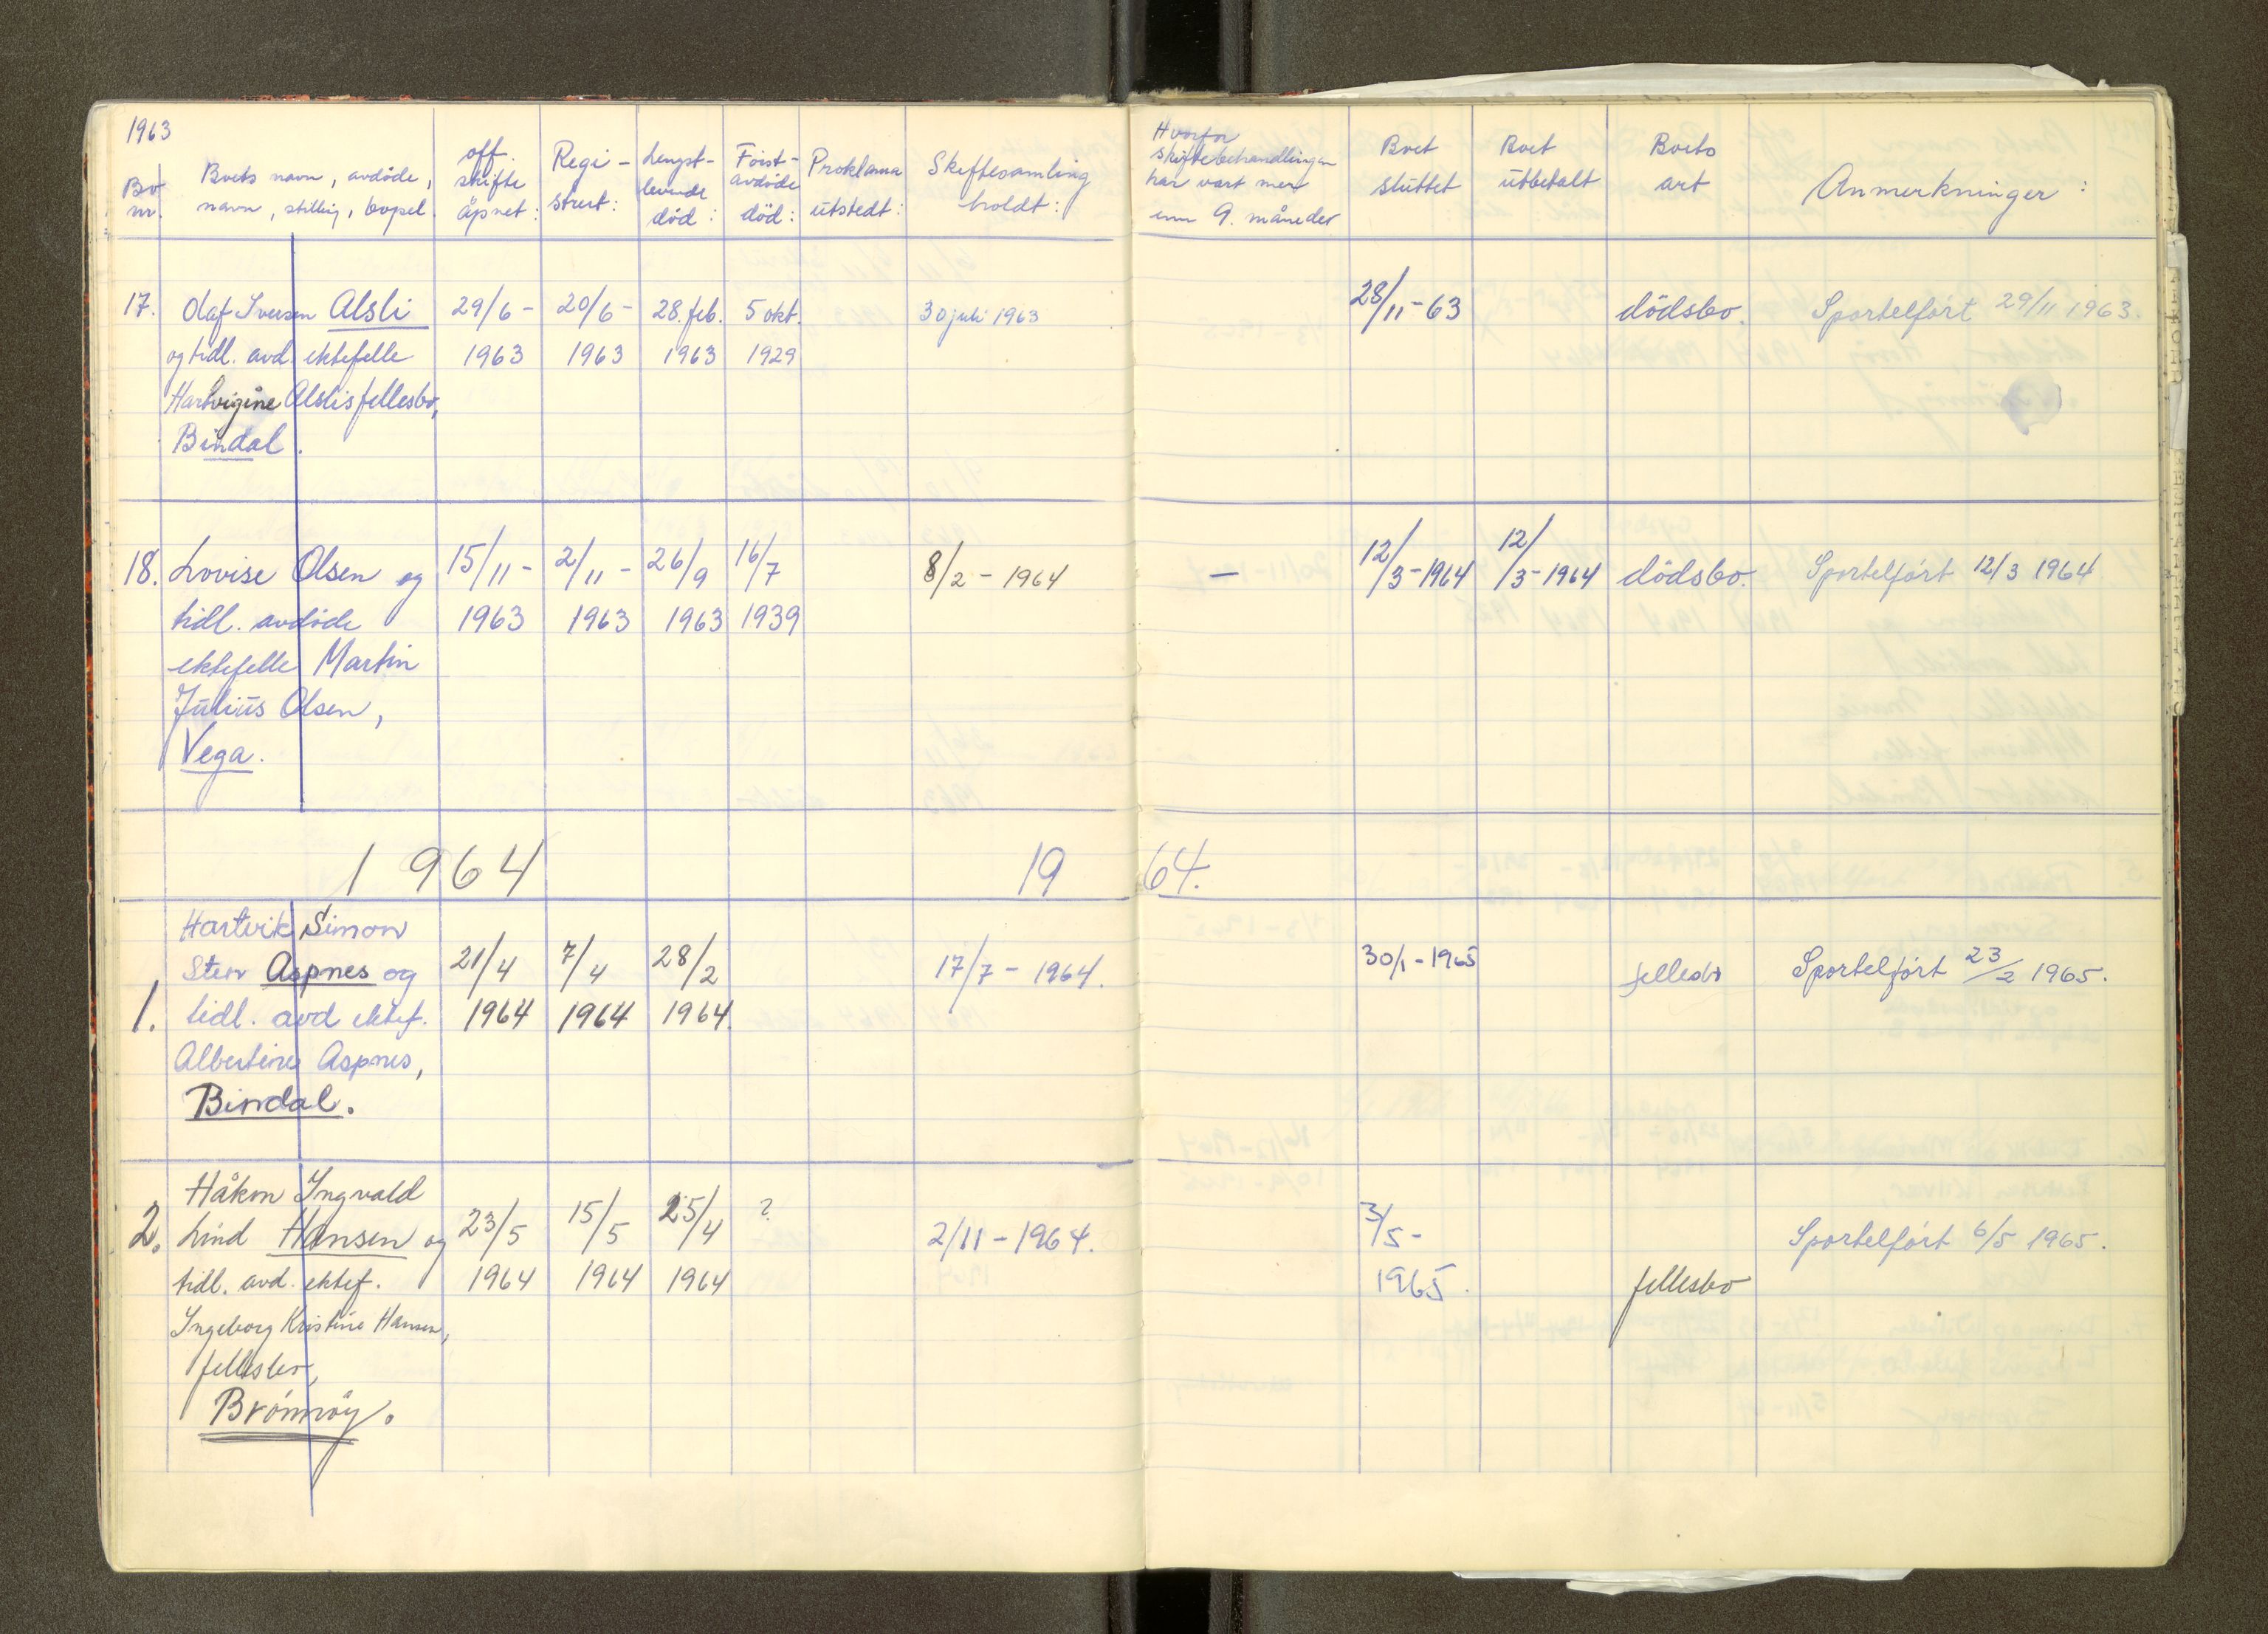 1963
Bo nr.
Boets navn, avdöde,
navn, stilling, bopel.
off. skifte åpnet:
Regi- strert:
Lengst- levende död:
Först- avdöde död:
Proklama utstedt:
Skiftesamling holdt:
Hvorfor
skiftebehandlingen
har vart mer
enn 9. måneder
Boet sluttet
Boet utbetalt
Boets art
Anmerkninger:
17. Olaf Iversen Alsli 29/6- 20/6- 28. feb. 5 okt. 30 juli 1963 28/11-63 dödsbo. Sportelført 29/11 1963.
og tidl. avd. ektefelle 1963 1963 1963 1929
Hartvigine Alslis fellesbo,
Bindal.
18. Lovise Olsen og 15/11- 2/11- 26/9 16/7 8/2-1964 — 12/3-1964 12/3-1964 dödsbo. Sportelført 12/3 1964
tidl. avdöde 1963 1963 1963 1939
ektefelle Martin
Julius Olsen,
Vega.
1964 1964.
Hartvik Simon
Sten Aspnes og 21/4 7/4 28/2 17/7-1964. 30/1-1965 fellesbo Sportelført 23/2 1965.
1. tidl. avd ektef. 1964 1964 1964.
Albertine Aspnes,
Bindal.
Håkon Ingvald
2. Lind Hansen og 23/5 15/5 25/4 ? 2/11-1964. 3/5- Sportelført 6/5 1965.
tidl. avd. ektef. 1964 1964 1964 1965. fellesbo
Ingeborg Kristine Hansen,
fellesbo,
Brønnöy.